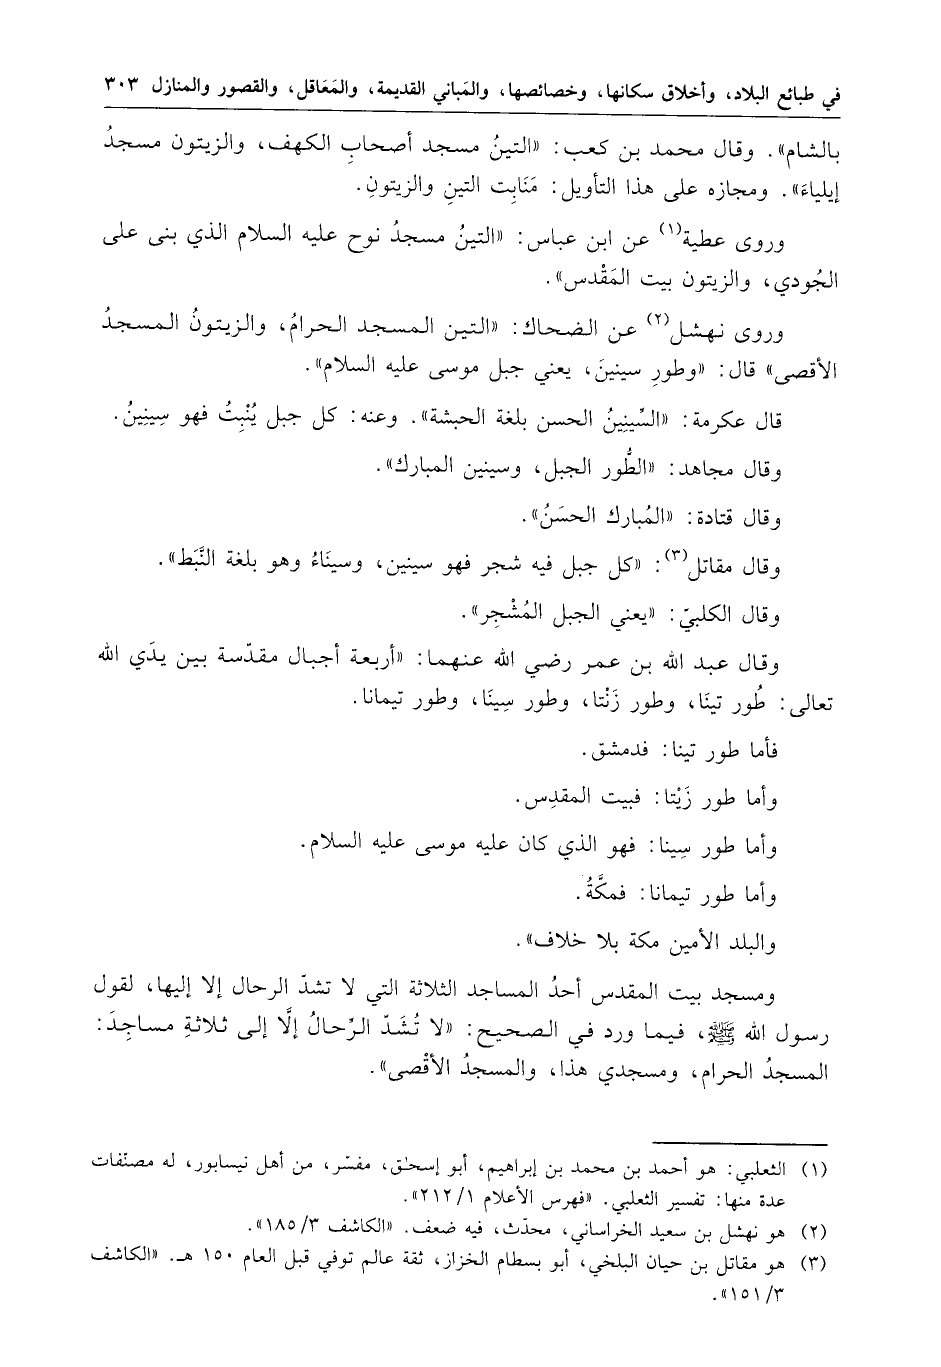 في طبائع البلاد، وأخلاق سكانها، وخصائصها، والمَباني القديمة، والمَعَاقل، والقصور والمنازل ٣٠٣
بالشام». وقال محمد بن كعب: «التينُ مسجد أصحابِ الكهف، والزيتون مسجدُ
إيلياءَ». ومجازه على هذا التأويل: مَنَابِت التينِ والزيتونِ.
وروى عطية(١) عن ابن عباس: «التينُ مسجدُ نوح عليه السلام الذي بنى على
الجُودي، والزيتون بيت المَقْدس».
وروى نهشل(٢) عن الضحاك: «التين المسجد الحرامُ، والزيتونُ المسجدُ
الأقصى» قال: «وطورِ سينينَ، يعني جبل موسى عليه السلام».
قال عكرمة: «السِّينِينُ الحسن بلغة الحبشة». وعنه: كل جبل يُنْبِتُ فهو سِينِينُ.
وقال مجاهد: «الطُّور الجبل، وسينين المبارك».
وقال قتادة: «المُبارك الحسَنُ».
وقال مقاتل(٣): «كل جبل فيه شجر فهو سينين، وسينَاءُ وهو بلغة النَّبَط».
وقال الكلبيّ: «يعني الجبل المُشْجِر».
وقال عبد الله بن عمر رضي الله عنهما: «أربعة أجبال مقدّسة بين يدَي الله
تعالى: طُور تينَا، وطور زَنْتا، وطور سِينَا، وطور تيمانا.
فأما طور تينا: فدمشق.
وأما طور زَيْتا: فبيت المقدِس.
وأما طور سِينا: فهو الذي كان عليه موسى عليه السلام.
وأما طور تيمانا: فمكَّةُ.
والبلد الأمين مكة بلا خلاف».
ومسجد بيت المقدس أحدُ المساجد الثلاثة التي لا تشدّ الرحال إلا إليها، لقول
رسول الله ﷺ، فيما ورد في الصحيح: «لا تُشَدّ الرِّحالُ إلَّا إلى ثلاثةِ مساجِدَ:
المسجدُ الحرام، ومسجدي هذا، والمسجدُ الأقْصى».
(١) الثعلبي: هو أحمد بن محمد بن إبراهيم، أبو إسحٰق، مفسّر، من أهل نيسابور، له مصنّفات
عدة منها: تفسير الثعلبي. «فهرس الأعلام ٢١٢/١».
(٢) هو نهشل بن سعيد الخراساني، محدّث، فيه ضعف. «الكاشف ١٨٥/٣».
(٣) هو مقاتل بن حيان البلخي، أبو بسطام الخزاز، ثقة عالم توفي قبل العام ١٥٠ هـ. «الكاشف
١٥١/٣».